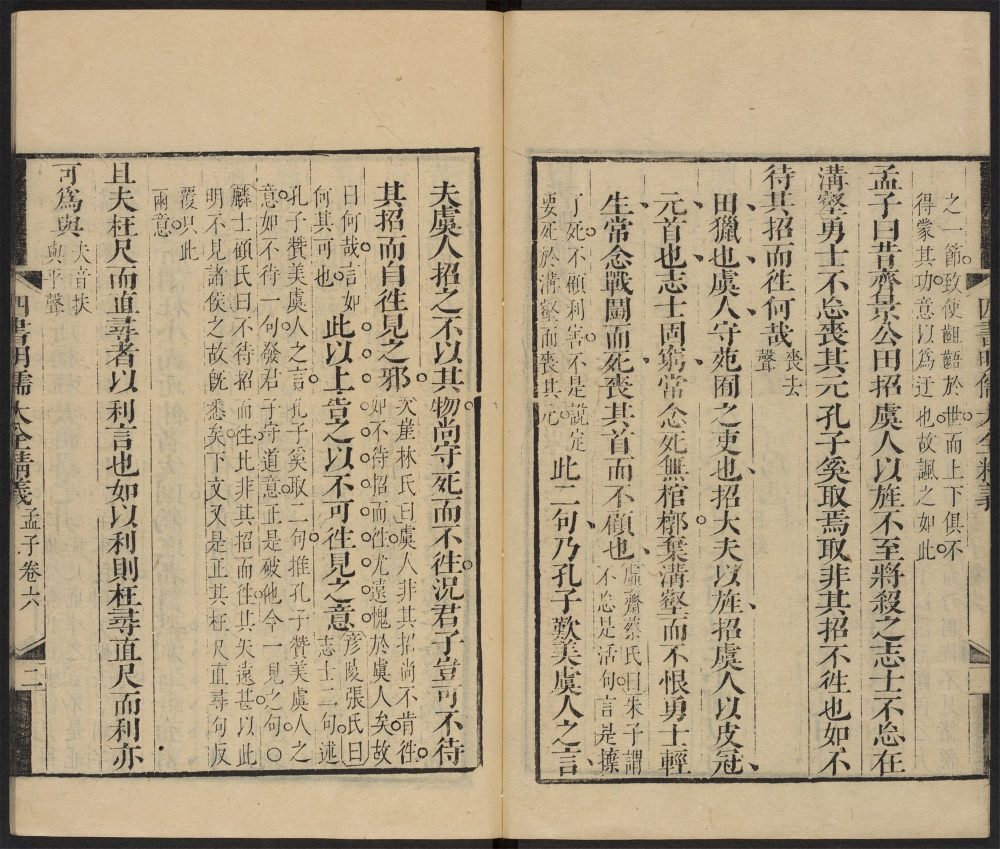 之一節致使齟齬於世而上下俱不
得蒙其功意以爲迂也故諷之如此
孟子曰昔齊景公田招虞人以旌不至將殺之志士不忘在
溝壑勇士不忘喪其元孔子奚取焉取非其招不徃也如不
待其招而徃何哉喪去
聲
田獵也虞人守苑囿之吏也招大夫以旌招虞人以皮冠
元首也志士固窮常念死無棺槨棄溝壑而不恨勇士輕
生常念戰鬬而死喪其首而不顧也虛齋蔡氏曰朱子謂
不忘是活句言是㨿
了死不顧利害不是說定
要死於溝壑而喪其元此二句乃孔子歎美虞人之言
夫虞人招之不以其物尚守死而不徃況君子豈可不待
其招而自徃見之邪次崖林氏曰虞人非其招尚不肯徃
如不待招而徃尤遠愧於虞人矣故
曰何哉言如
何其可也此以上告之以不可徃見之意彦陵張氏曰
志士二句述
孔子贊美虞人之言孔子奚取二句推孔子贊美虞人之
意如不待一句發君子守道意正是破他今一見之句○
麟士顧氏曰不待招而徃比非其招而徃其矢遠甚以此
明不見諸侯之故旣悉矣下文又是正其枉尺直尋句反
覆只此
兩意
且夫枉尺而直尋者以利言也如以利則枉尋直尺而利亦
可爲與夫音扶
與平聲
四書明儒大全精義 孟子卷六 二